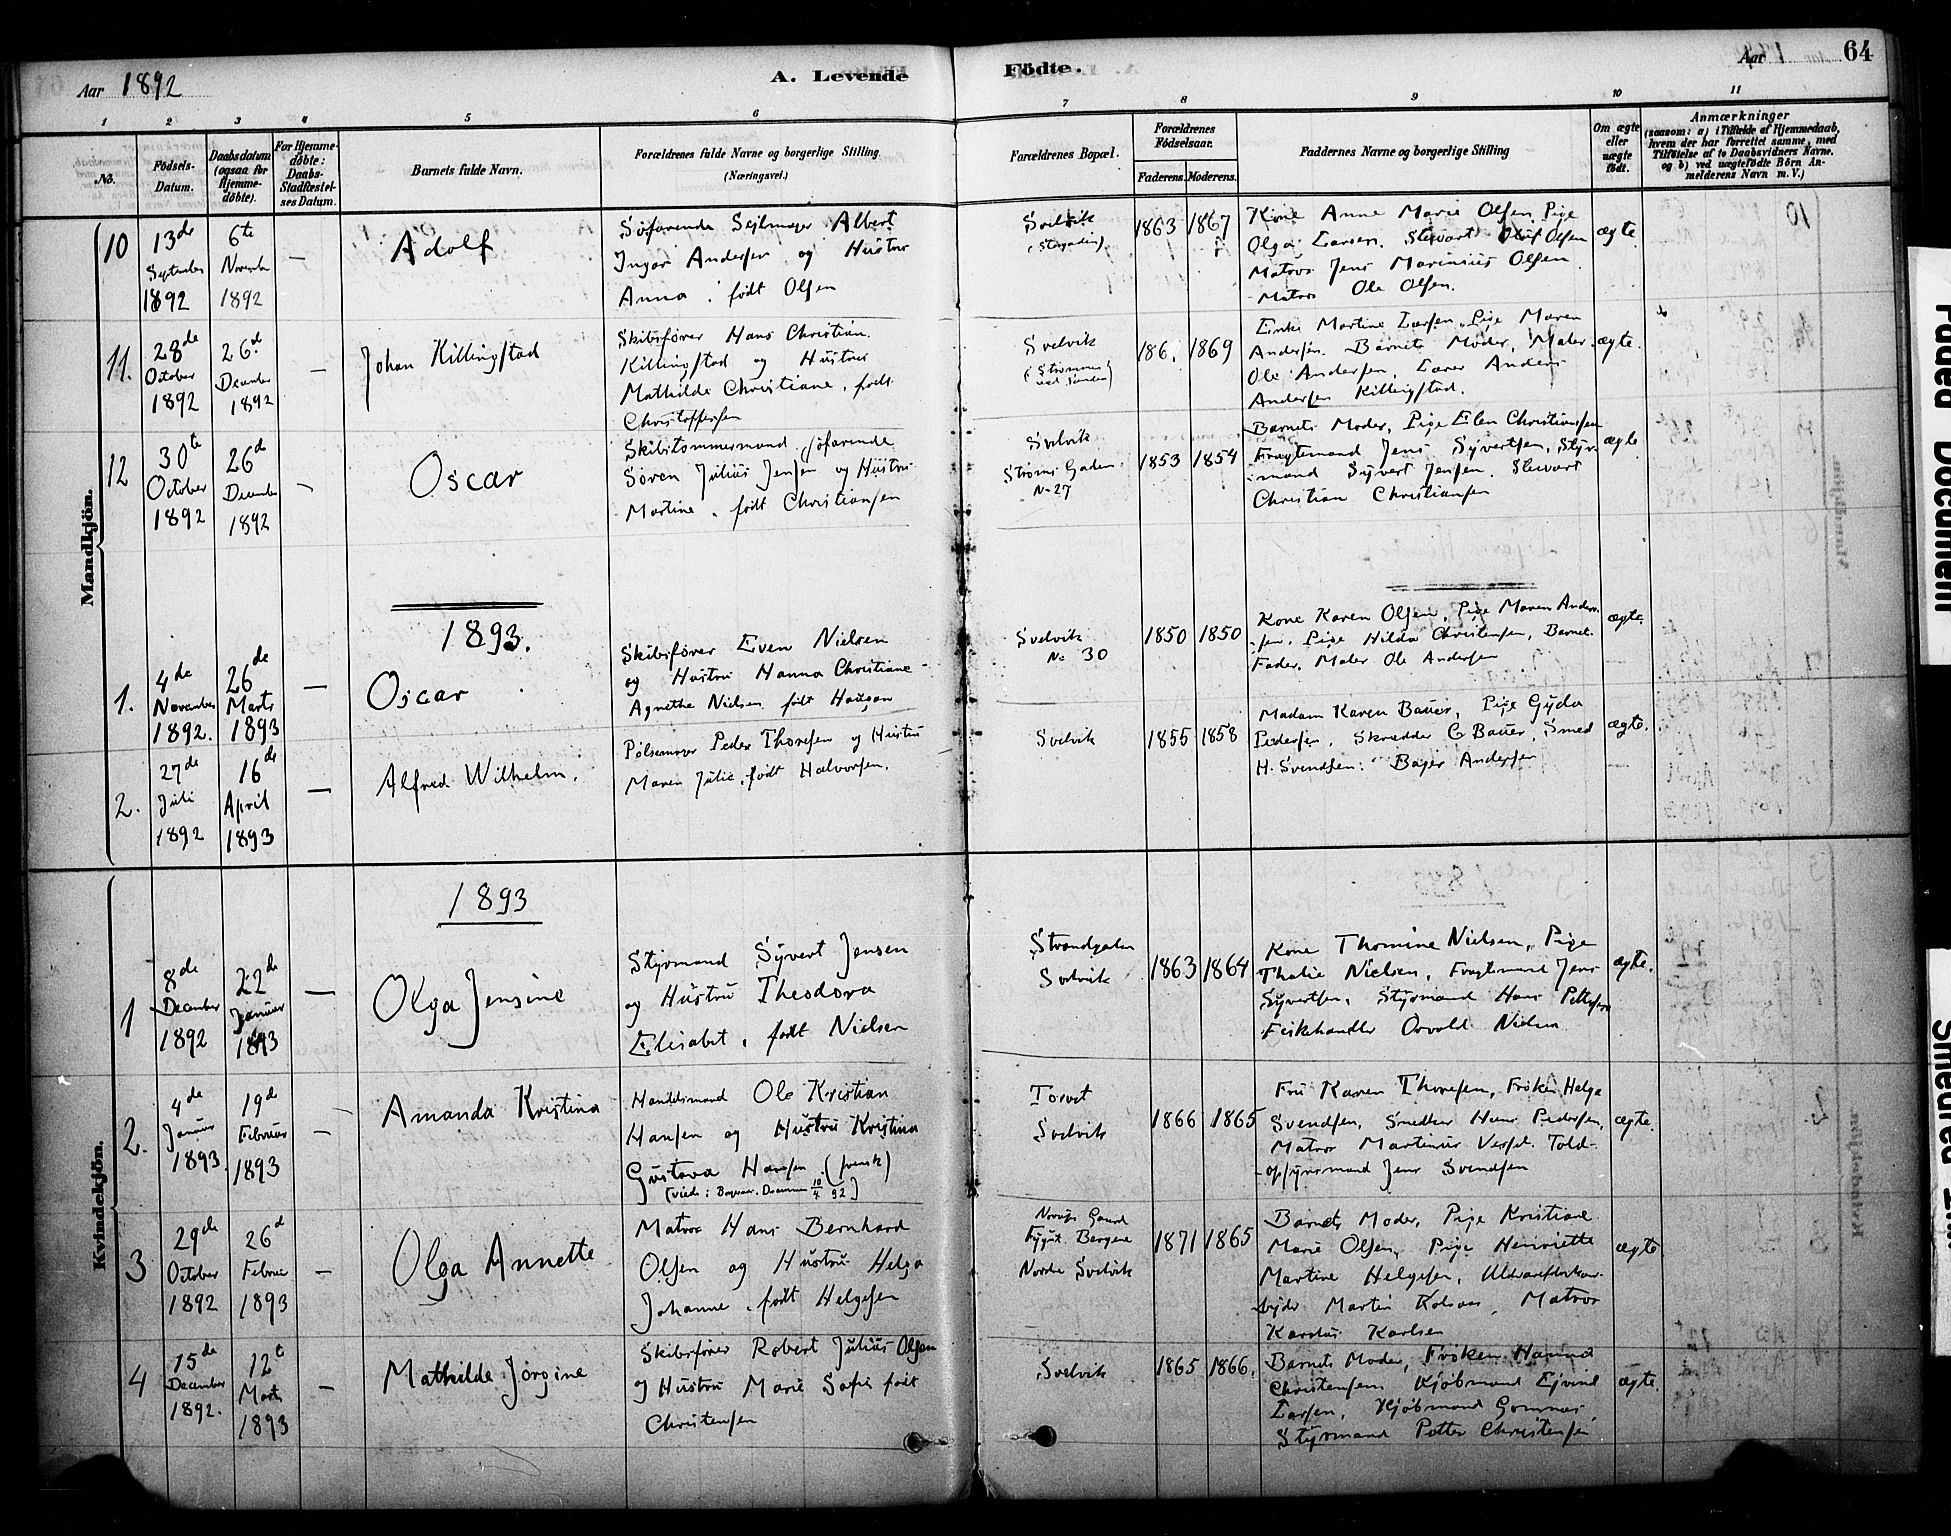 Aar 1892
A. Levende
Födte.
Aar 1
64
1 2 3 4 5 6 7 8 9 10 11
No.
Födsels-
Datum.
Daabsdatum
(ogsaa for
Hjemme-
döbte).
For Hjemme-
döbte:
Daabs-
Stadfæstel-
ses Datum.
Barnets fulde Navn.
Forældrenes fulde Navne og borgerlige Stilling
(Næringsvei.)
Forældrenes Bopæl.
Forældrenes
Födselsaar.
Faderens. Moderens.
Faddernes Navne og borgerlige Stilling
Om ægte
eller
uægte
födt.
Anmærkninger
(saasom: a) i Tilfælde af Hjemmedaab,
hvem der har forrettet samme, med
Tilföielse af to Daabsvidners Navne.
og b) ved uægtefödte Börn An-
melderens Navn m. V.)
Mandkjön.
10
13de
September
1892
6te
November
1892
—
Adolf
Söfarende Seglmager Albert
Ingar Andersen og Hustru
Anna, født Olsen
Svelvik
(Storgaden)
1863
1867
Kone Anne Marie Olsen, Pige
Olga Larsen, Stewart Oluf Olsen
Matros Jens Marinius Olsen
Matros Ole Olsen.
ægte.
11.
28de
October
1892
26d.
December
1892
—
Johan Killingstad
Skibsfører Hans Christian
Killingstad og Hustru
Mathilde Christiane, født
Christoffersen
Svelvik
(Strømmen
ved Sanden)
186.
1869
Enke Martine Larsen, Pige Maren
Andersen. Barnets Moder, Maler
Ole Andersen, Lærer Anders
Andersen Killingstad.
ægte.
12
30te
October
1892
26de
December
1892
—
Oscar
Skibstømmermand, søfarende
Søren Julius Jensen og Hustru
Martine, født Christiansen
Svelvik
Strøms Gaden
No 27
1853
1854
Barnets Moder, Pige Elen Christiansen
Fragtemand Jens Syvertsen, Styr-
mand Syvert Jensen, Stewart
Christian Christiansen
ægte
1893.
1.
4de
November
1892.
26de
Marts
1893
—
Oscar
Skibsfører Even Nielsen
og Hustru Hanna Christiane
Agnethe Nielsen født Haugan
Svelvik
No 30
1850
1850
Kone Karen Olsen, Pige Maren Ander-
sen, Pige Hilda Christensen, Barnets
Fader, Maler Ole Andersen
ægte.
2.
27de
Juli
1892
16de
April
1893
—
Alfred Wilhelm.
Pølsemager Peder Thoresen og Hustru
Maren Julie, født Halvorsen.
Svelvik
1855
1858
Madam Karen Bauer, Pige Gyda
Pedersen, Skrædder C Bauer, Smed
H. Svendsen. Bager Andersen
ægte.
Kvindekjön.
1893
1
8de
December
1892
22de
Januar
1893
—
Olga Jensine
Styrmand Syvert Jensen
og Hustru Theodora
Elisabet, født Nielsen
Strandgaden
Svelvik
1863
1864
Kone Thomine Nielsen, Pige
Thalie Nielsen, Fragtemand Jens
Syvertsen, Styrmand Hans Pettersen
Fiskehandler Osvald Nielsen
ægte.
2.
4de
Januar
1893.
19d
Februar
1893
—
Amanda Kristina
Handelsmand Ole Kristian
Hansen og Hustru Kristina
Gustava Hansen (svensk)
Torvet
Svelvik
1866
1865
Fru Karen Thoresen, Frøken Helga
Svendsen, Snedker Hans Pedersen,
Matros Martinius Vessel. Told-
opsynsmand Jens Svendsen
ægte.
3
29de
October
1892
26d
Februar
1893
—
Olga Annette
Matros Hans Bernhard
Olsen og Hustru Helga
Johanne, født Helgesen
Gaard
Bergene
Nordre Svelvik
1871
1865
Barnets Moder, Pige Kristiane
Marie Olsen, Pige Henriette
Martine Helgesen,
Martin Kolsaas, Matros
Karlsen
ægte
4
15de
December
1892.
12t
Marts
1893
—
Mathilde Jørgine
Skibsfører Robert Julius Olsen
og Hustru Marie Sofie født
Christensen
Svelvik
1865
1866.
Barnets Moder, Frøken Hanna
Christensen, Kjøbmand Ejvind
Larsen, Kjøbmand Gommes
Styrmand Petter Christensen
ægte.
Faded Document
Smeared